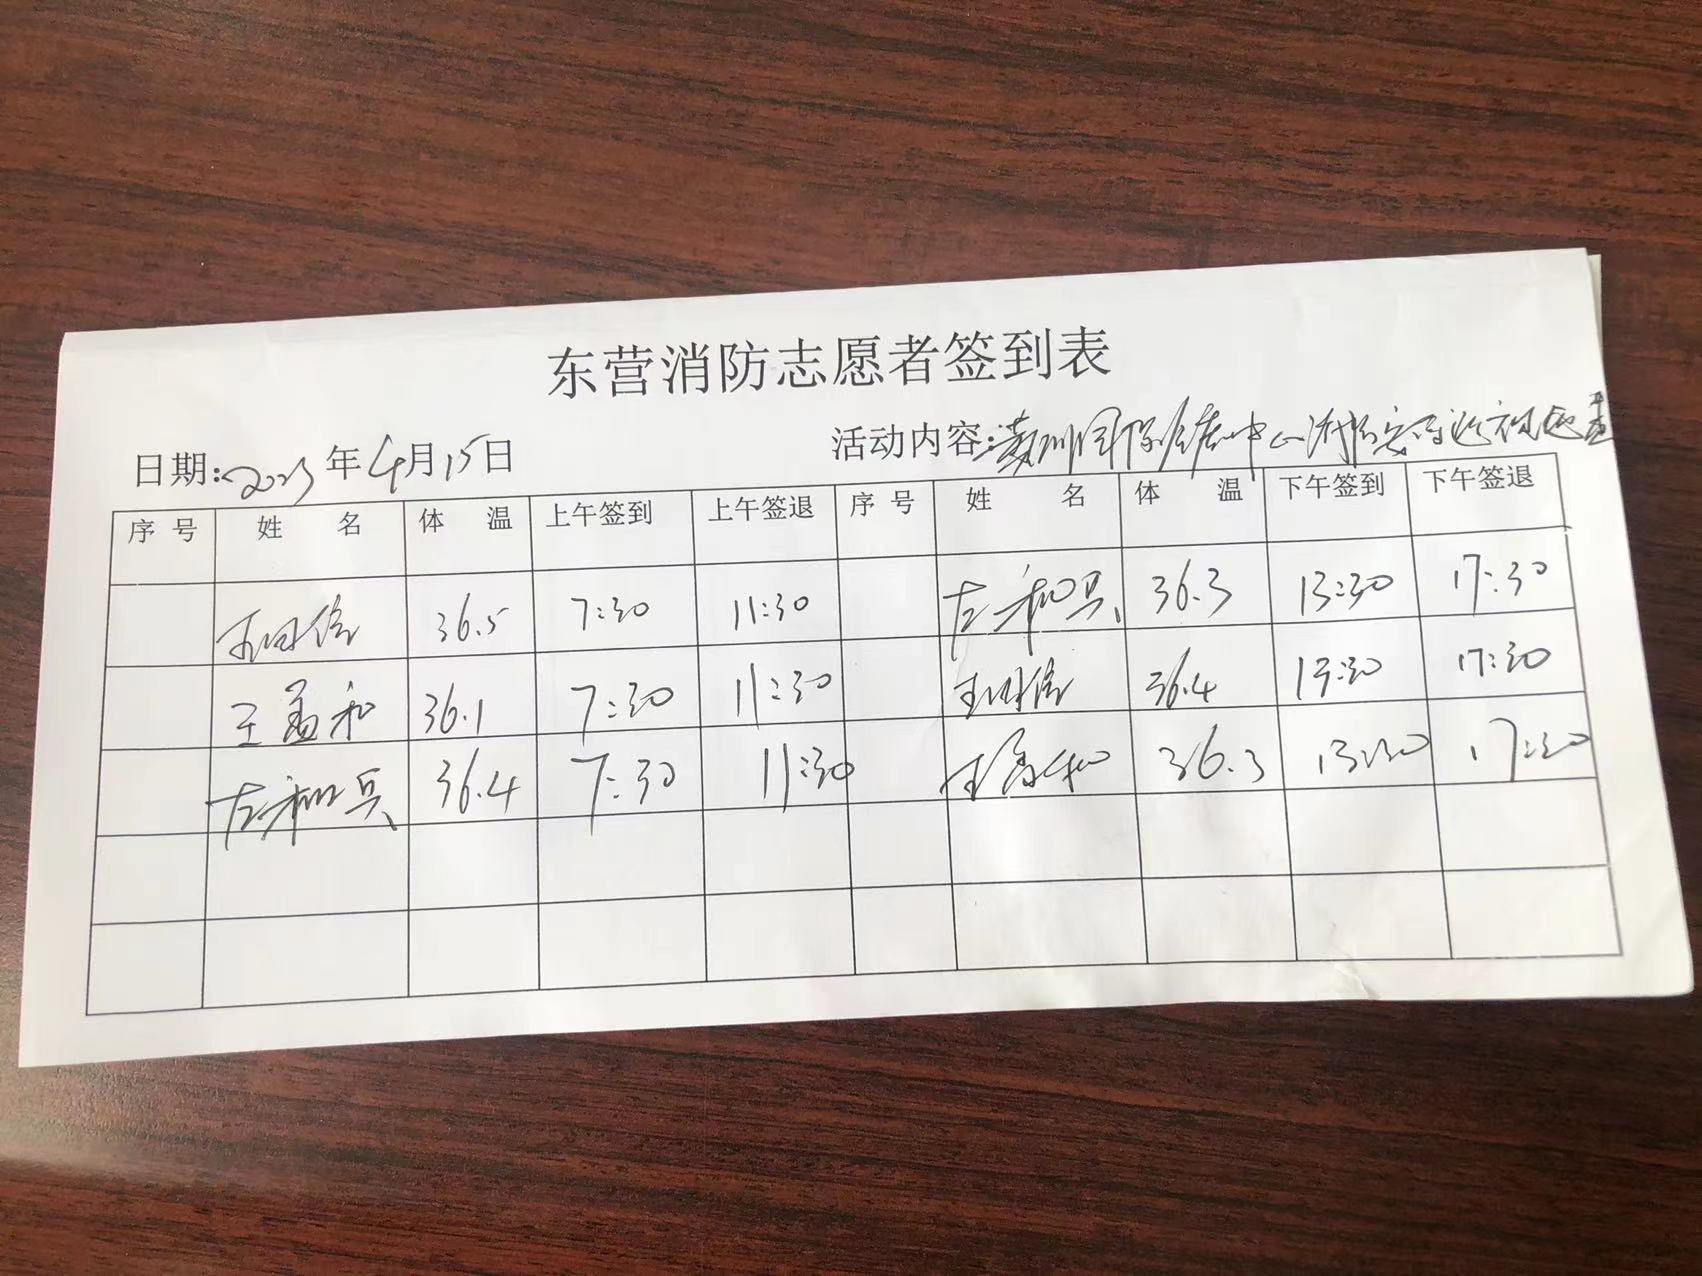 东营消防志愿者签到表
日期: 2023 年 4 月 15 日 活动内容: 国际 中心消防安全巡视检查
序号 姓名 体温 上午签到 上午签退 序号 姓名 体温 下午签到 下午签退
王国信 36.5 7:30 11:30 左和兵 36.3 13:30 17:30
王孟和 36.1 7:30 11:30 王国信 36.4 13:30 17:30
左和兵 36.4 7:30 11:30 王孟和 36.3 13:30 17:30